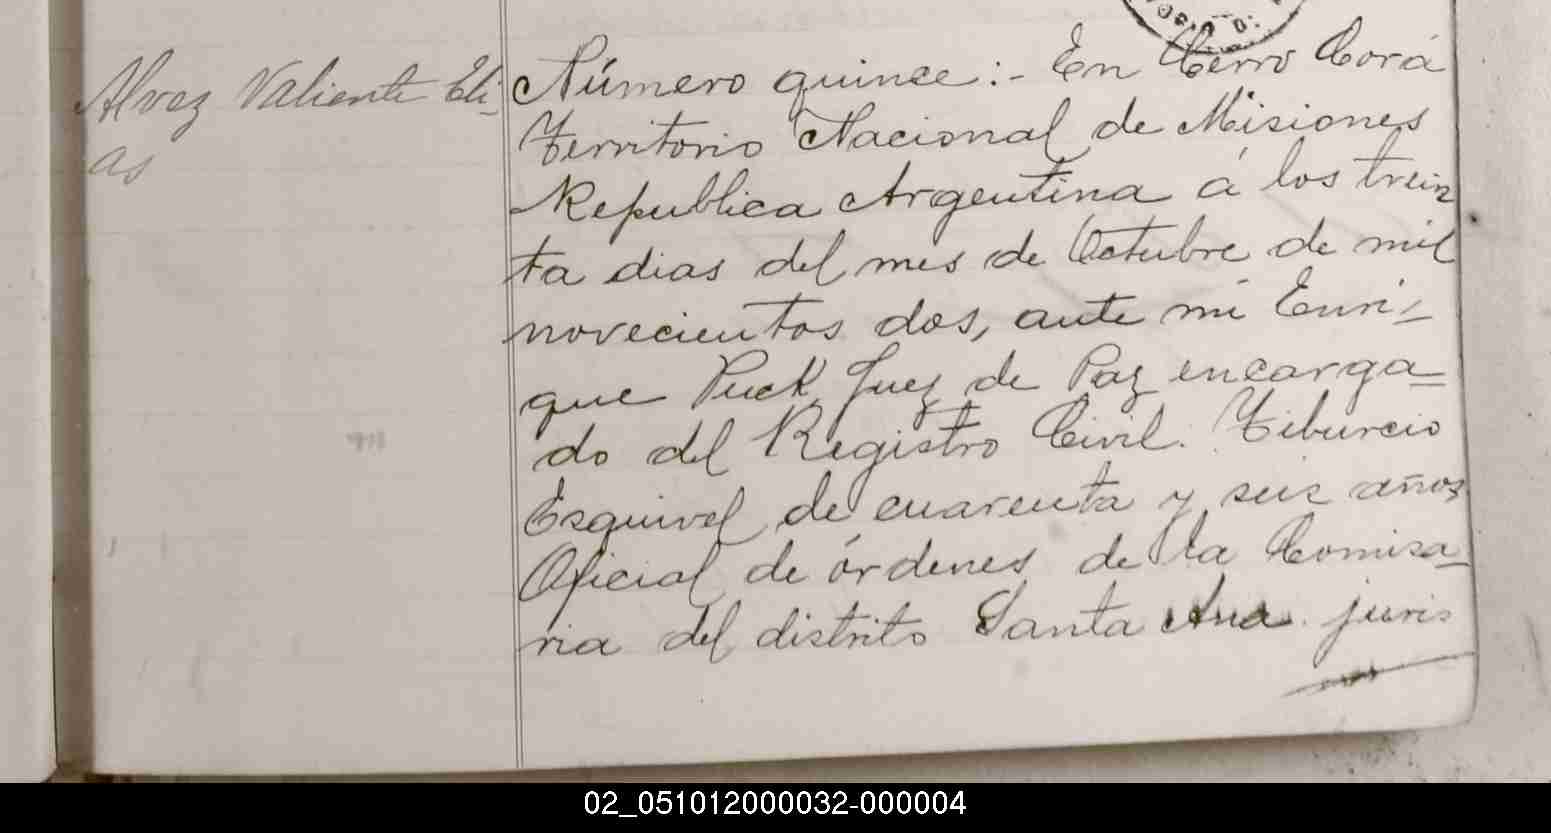 Alvez Valiente Eli-
as
Número quince:- En Cerro Corá
Territorio Nacional de Misiones
Republica Argentina á los trein
ta dias del mes de Octubre de mil
novecientos dos, ante mi Enri-
que Puck, Juez de Paz encarga-
do del Registro Civil. Tiburcio
Esquivel de cuarenta y seis años
Oficial de órdenes de la Comisa-
ria del distrito Santa Ana juris
02_051012000032-000004